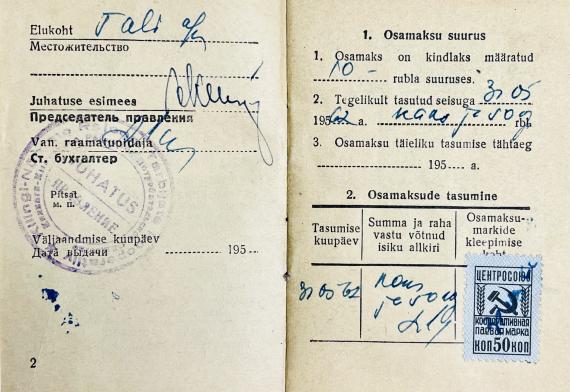 Elukoht Tali a/n
Местожительство
Juhatuse esimees
Председатель правления
Van. raamatupidaja
Ст. бухгалтер
JUHATUS
ПРАВЛЕНИЕ
Pitsat
м. п.
Väljaandmise kuupäev
Дата выдачи 195
2
1. Osamaksu suurus
1. Osamaks on kindlaks määratud
10 - rubla suuruses.
2. Tegelikult tasutud seisuga 31 05
1962 a. kaks ja 50 rbl.
3. Osamaksu täieliku tasumise tähtaeg
195 a.
2. Osamaksude tasumine
Tasumise kuupäev
Summa ja raha vastu võtnud isiku allkiri
Osamaksu-markide kleepimise koht
31 05 62
kaks
ja 50
ЦЕНТРОСОЮЗ
КООПЕРАТИВНАЯ
ПАЕВАЯ МАРКА
КОП 50 КОП